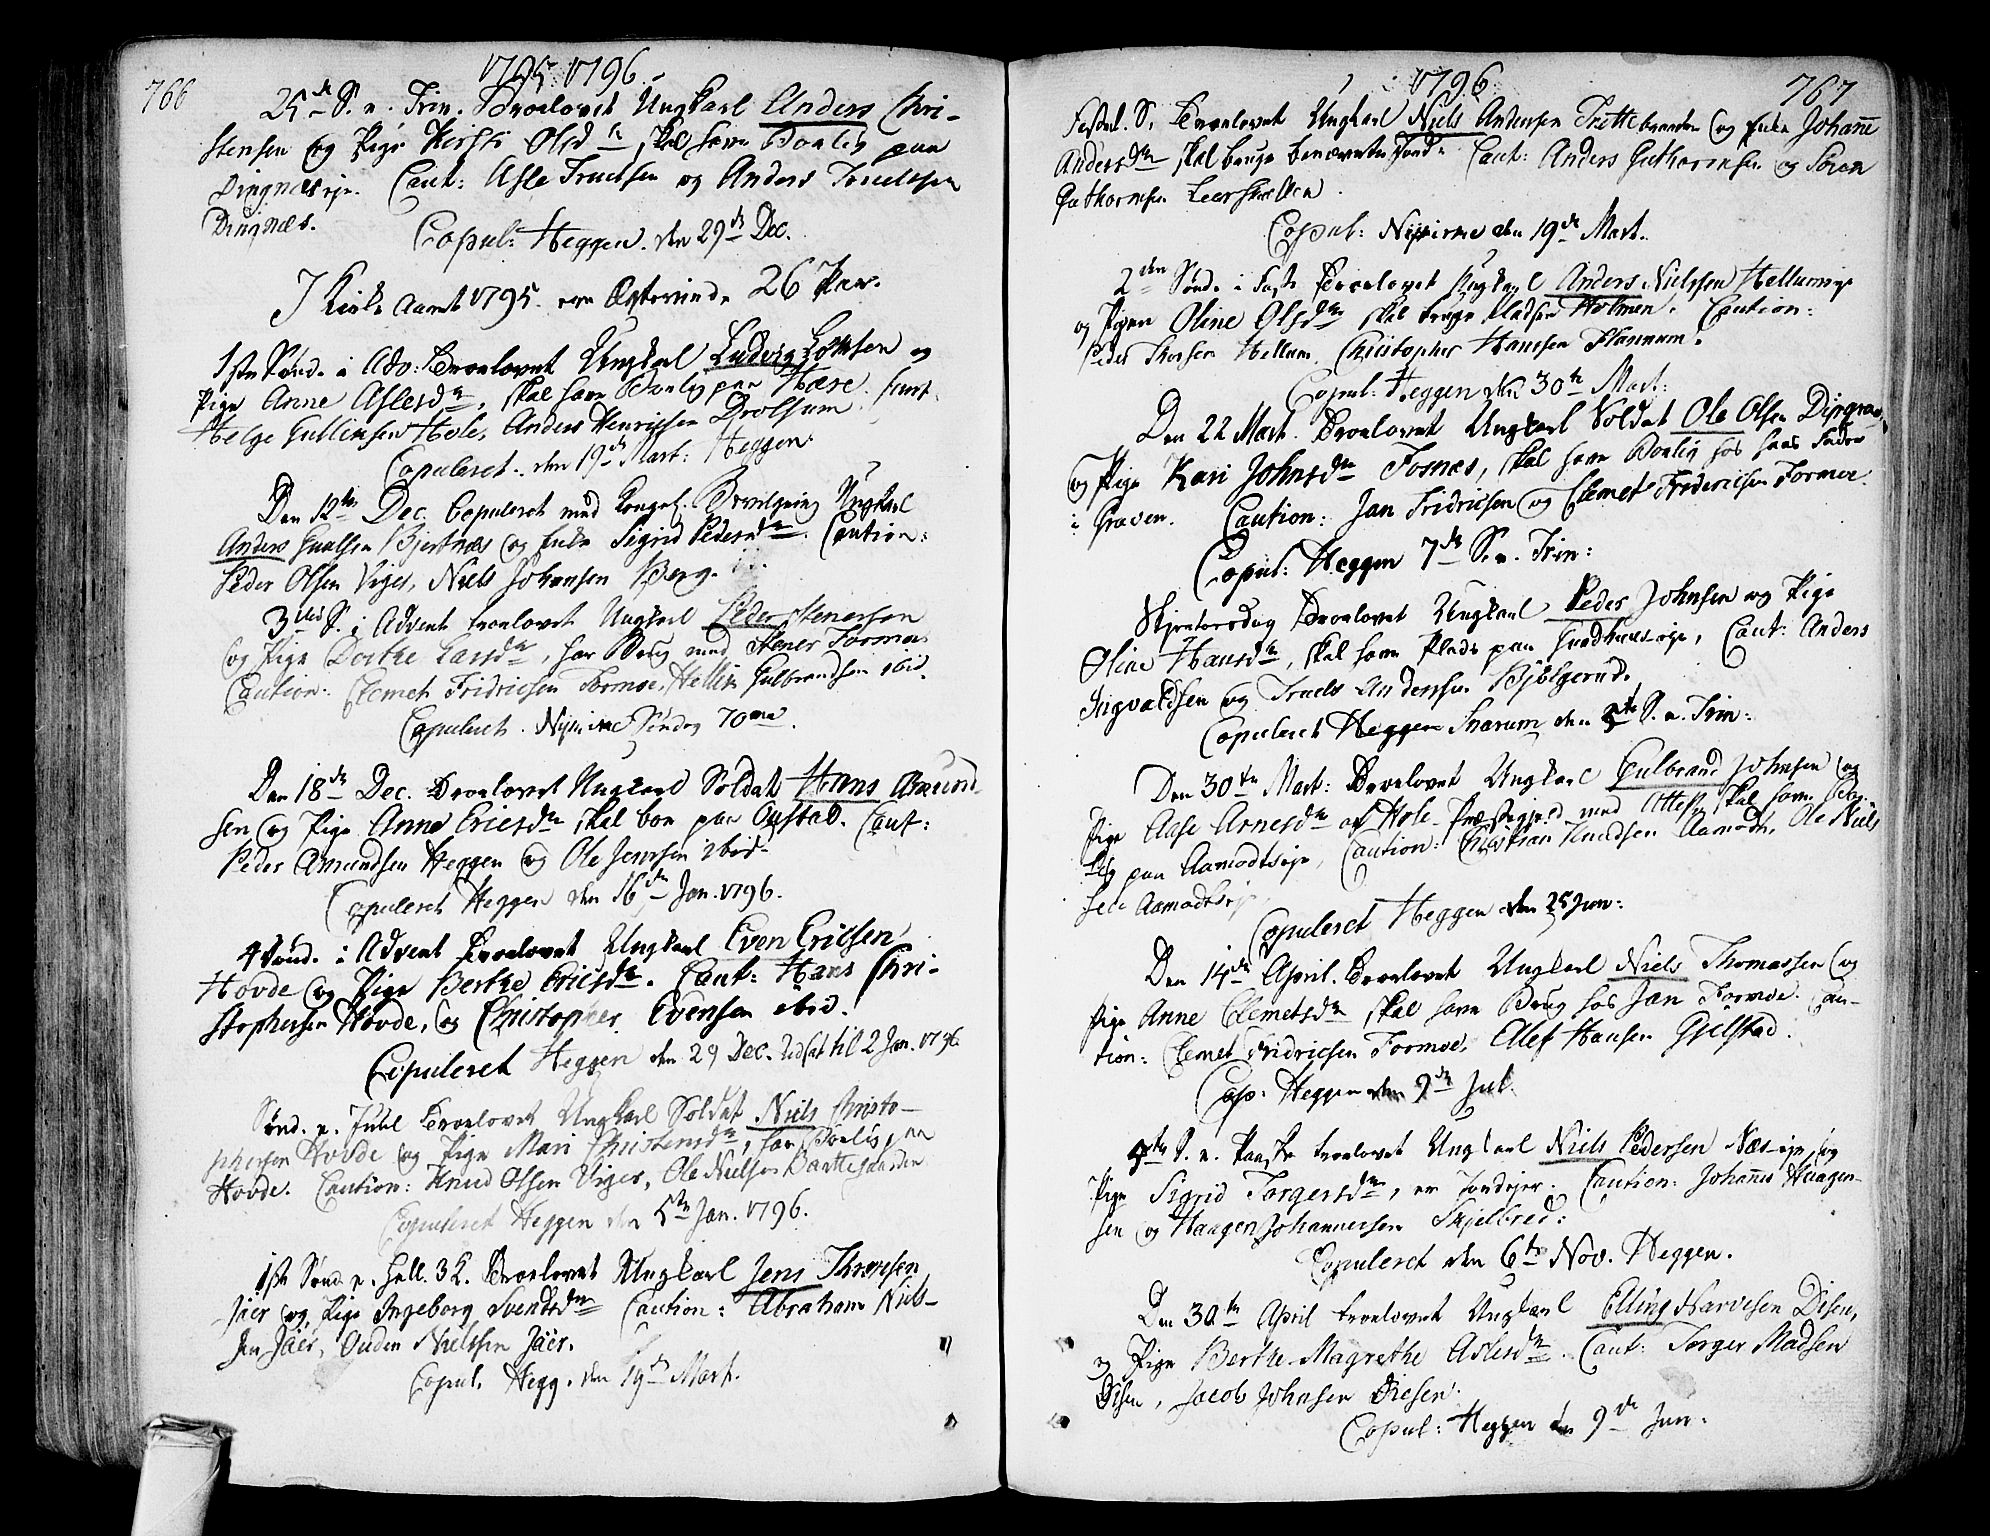 766
1795. 1796.
25de S. n. Trin. Trolovet Ungkarl Anders Chri-
stensen og Pige Kersti Olsdr skal have Bolig paa
Dingnæs eje. Caut: Asle Truelsen og Anders Truelssen
Dingnæs.
Copul: Heggen. den 29de Dec.
I Kirke Aaret 1795. ere Egteviede 26 Par.
1ste Sønd. i Adv: Trolovet Ungkarl Ludvig og
Pige Anne Aslesdr, skal have Bolig paa Hære. Caut.
Helge Gullicksen Hole, Anders Henricksen Drolsum.
Copuleret. den 19de Mart: Heggen.
Den 12te Dec. Copuleret med Kongel. Bevilgning Ungkarl
Anders Bjertnæs og Enke Sigrid Pedersdr. Caution:
Peder Olsen Viger, Niels Johansen Berg.
3die S. i Advent trolovet Ungkarl Peder Stenersen
og Pige Dorthe Larsdr, har Brug med Stener Formoe.
Caution: Clemet Fridricsen Formoe, Hellik Gulbrandsen ibid.
Copuleret. Nykirke Søndag 70me.
Den 18de Dec. Trolovet Ungkarl Soldat Hans Amund-
sen og Pige Anne Ericsdr skal boe paa Opstad. Caut:
Peder Amundsen Heggen og Ole Jenssen ibid.
Copuleret Heggen den 16de Jan. 1796.
4 Sønd. i Advent Trolovet Ungkarl Even Ericsen
Hovde og Pige Berthe Ericsdr. Caut: Hans Chri-
stophersen Hovde, og Christopher Evensen ibid.
Copuleret Heggen den 29 Dec. Udsat til 2 Jan. 1796
Sønd. n. Juul Trolovet Ungkarl Soldat Niels Christo-
phersen Hovde og Pige Mari Christensdr, har Bolig paa
Hovde. Caution: Knud Olsen Viger, Ole Nielsen
Copuleret Heggen den 5te Jan. 1796.
1ste Sønd. n. Hell. 3 K. Trolovet Ungkarl Jens Thronsen
Jäer og Pige Ingeborg Svendsdr Caution: Abraham Niel-
sen Jäer, Ouden Nielssen Jäer.
Copul. Hegg. den 19de Mart.
1796
767
Fastel. S. Trolovet Ungkarl Niels Andersen og Enke Johanne
Andersdr skal bruge benævnte Jord. Caut: Anders Guthormsen og Søren
Guthormsen
Copul: Nykirke den 19de Mart.
2den Sønd. i Faste Trolovet Ungkarl Anders Nielssen Hellumeje
og Pigen Oline Olsdr skal bruge Pladsen Holmen. Caution:
Peder Thorsen Hellum, Christopher Hansen Flannum.
Copul: Heggen den 30te Mart:
Den 22 Mart. Trolovet Ungkarl Soldat Ole Olsen
og Pige Kari Johnsdr Fosnæs, skal have Bolig hos hans Fader
i Graven. Caution: Jan Fridricsen og Clemet Fredericsen Formoe.
Copul: Heggen 7de S. n. Trin:
Skjertorsdag Trolovet Ungkarl Peder Johnsen og Pige
Oline Hansdr, skal have Plads paa eje, Caut: Anders
Ingvaldsen og Truels Anderssen Bjölgerud.
Copuleret Heggen Snarum den S. n. Trin:
Den 30te Mart: Trolovet Ungkarl Gulbrand Johnsen og
Pige Aase Arnesdr af Hole Præstegjeld med Attest, skal have Bo-
lig paa Aamodtseje, Caution: Christian Knudsen Aamodt, Ole Niels
sen Aamodtseje
Copuleret Heggen den 25 Jun:
Den 14de April. Trolovet Ungkarl Niels Thomassen og
Pige Anne Clemetsdr skal have Brug hos Jan Formoe. Cau-
tion: Clemet Fridricsen Formoe, Ellef Hansen Gjelstad.
Cop: Heggen den 9de Jul.
4de S. n. Paaske trolovet Ungkarl Niels Pedersen Næs-eje, og
Pige Sigrid Torgersdr, er Jordejer. Caution: Johannes Haagen-
sen og Haagen Johannessen Skjelbred:
Copuleret den 6te Nov. Heggen.
Den 30te April trolovet Ungkarl Elling Harvesen Disen,
og Pige Berthe Magrethe Aslesdr. Caut: Torger Madsen
Disen, Jacob Johnsen Disen.
Copul: Heggen den 9de Jun.